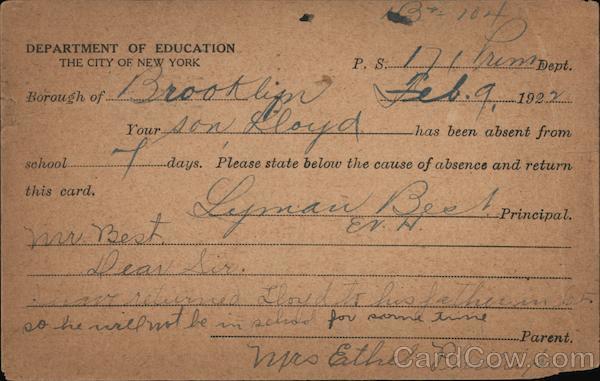 1B+- 104
DEPARTMENT OF EDUCATION
THE CITY OF NEW YORK
P. S. 171 Prim Dept.
Borough of Brooklyn Feb. 9, 1922
Your son, Lloyd has been absent from
school 7 days. Please state below the cause of absence and return
this card.
Lyman Best Principal.
Mr. Best
Dear Sir.
returned Lloyd to his father in
so he will not be in school for some time
Parent.
Mrs Ethel
CardCow.com